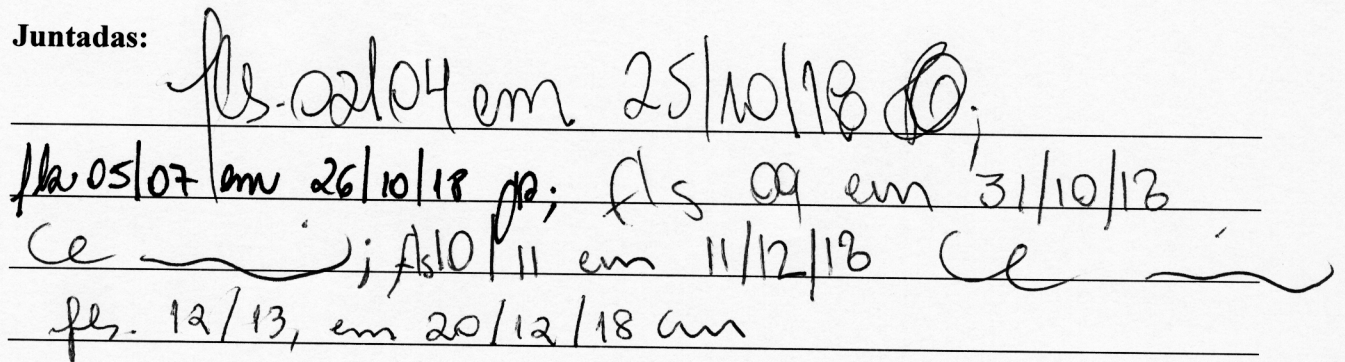 Juntadas:
fls. 02/04 em 25/10/18 ;
fls 05/07 em 26/10/18 ; fls 09 em 31/10/18
Ce ; fls 10/11 em 11/12/18 Ce
fls. 12/13, em 20/12/18